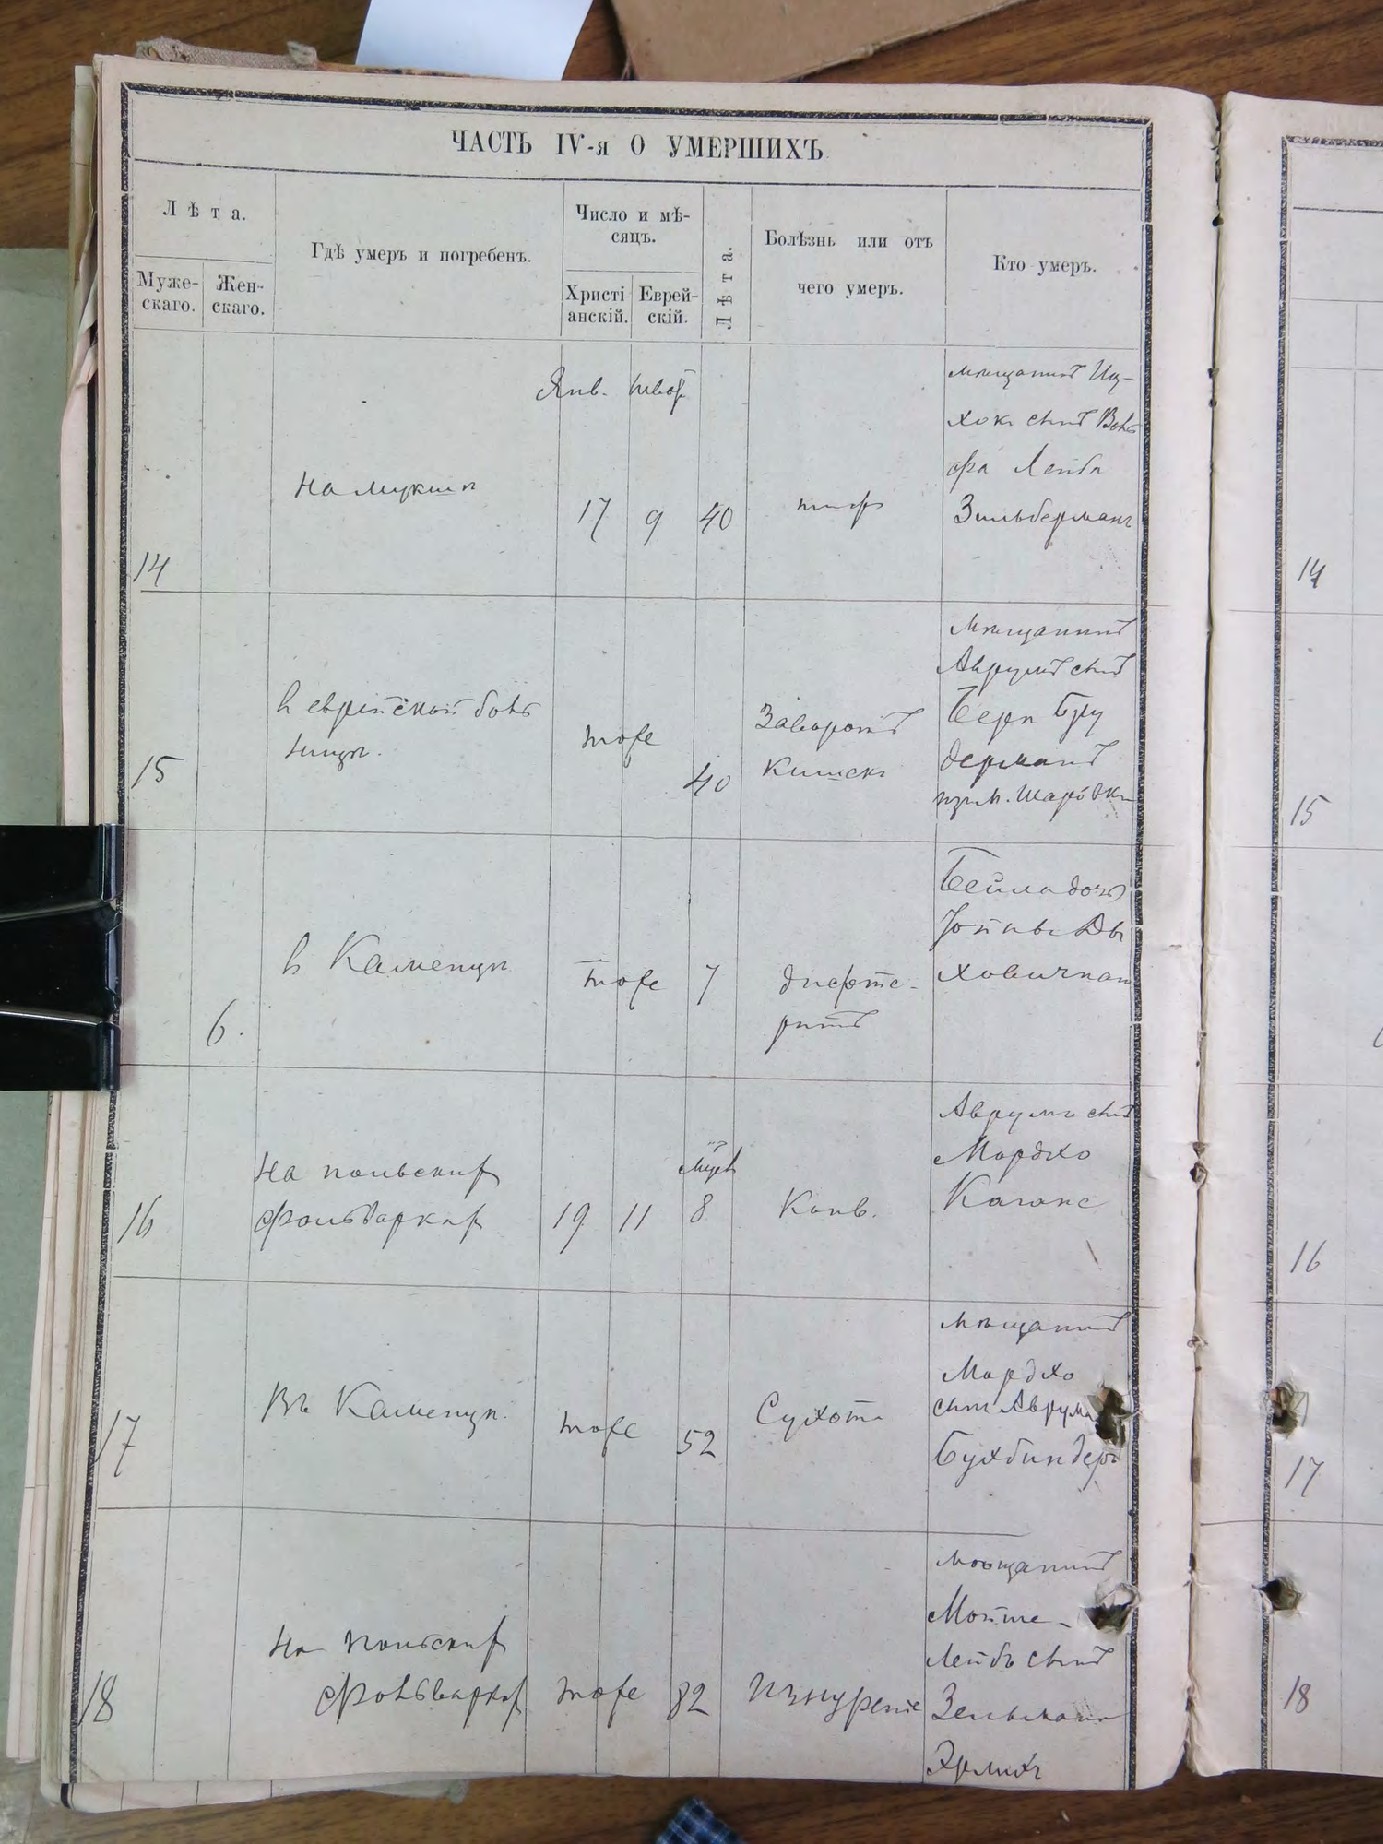 ЧАСТЬ IV-я О УМЕРШИХЪ.
Лѣта.
Муже-
скаго.
Жен-
скаго.
Гдѣ умеръ и погребенъ.
Число и мѣ-
сяцъ.
Христі
анскій.
Еврей-
скій.
Лѣта.
Болѣзнь или отъ
чего умеръ.
Кто умеръ.
14
Янв.
17
9
40
тифъ
мѣщанинъ Иц-
хокъ сынъ Воль
фа Лейба
Зильберманъ
14
15
в еврейской боль
ницѣ.
тоже
40
Заворотъ
Кишекъ
мѣщанинъ
Аврумъ сынъ
Берк
дерманъ
из м. Шаровки
15
6.
в Каменцѣ
тоже
7
дифте-
ритъ
Бейла дочь
16
На польских
фольваркахъ
19
11
мѣсяцев
8
Конв.
Аврумъ сынъ
Мордко
Каганс
16
17
Въ Каменцѣ.
тоже
52
Сухота
мѣщанинъ
Мордко
сынъ Аврума
Бухбиндеръ
17
18
На польских
фольваркахъ
тоже
82
изнурение
мѣщанинъ
Мойше-
Лейбъ сынъ
Зельмана
Эрлихъ
18